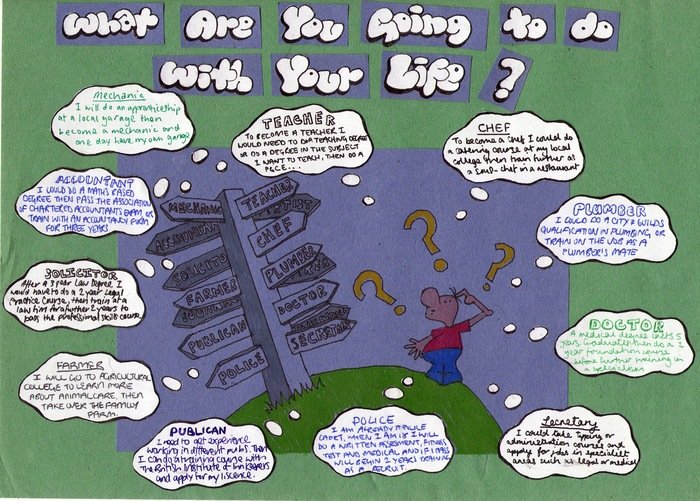 What Are You Going to do
With Your Life?
Mechanic
I will do an apprenticeship
at a local garage then
become a mechanic and
one day have my own garage
TEACHER
TO BECOME A TEACHER I
WOULD NEED TO DO A TEACHING DEGREE
OR DO A DEGREE IN THE SUBJECT
I WANT TO TEACH, THEN DO A
PGCE...
CHEF
To become a chef I could do
a catering course at my local
college then train further as
a sous-chef in a restaurant
ACCOUNTANT
I WOULD DO A MATHS BASED
DEGREE THEN PASS THE ASSOCIATION
OF CHARTERED ACCOUNTANTS EXAM OR
TRAIN WITH AN ACCOUNTANCY FIRM
FOR THREE YEARS
PLUMBER
I COULD DO A CITY & GUILDS
QUALIFICATION IN PLUMBING, OR
TRAIN ON THE JOB AS A
PLUMBER'S MATE
SOLICITOR
After a 3 year Law Degree I
would have to do a 2 year Legal
Practice Course, then train at a
law firm for a further 2 years to
pass the professional skills course
DOCTOR
A medical degree lasts 5
years. Graduates then do a 2
year foundation course
before further training in
a specialism
FARMER
I WILL GO TO AGRICULTURAL
COLLEGE TO LEARN MORE
ABOUT ANIMAL CARE, THEN
TAKE OVER THE FAMILY
FARM.
PUBLICAN
I need to get experience
working in different pubs. Then
I can do a training course with
the British Institute of Innkeepers
and apply for my liscence.
POLICE
I AM ALREADY A POLICE
CADET, WHEN I AM 18 I WILL
DO A WRITTEN ASSESSMENT, FITNESS
TEST AND MEDICAL AND IF I PASS
WILL BEGIN 2 YEARS TRAINING
AS A RECRUIT
Secretary
I could take typing or
administration courses and
apply for jobs in specialist
areas such as legal or medical
MECHANIC
ACCOUNTANT
SOLICITOR
FARMER
PUBLICAN
POLICE
TEACHER
ARTIST
CHEF
PLUMBER
DOCTOR
SECRETARY